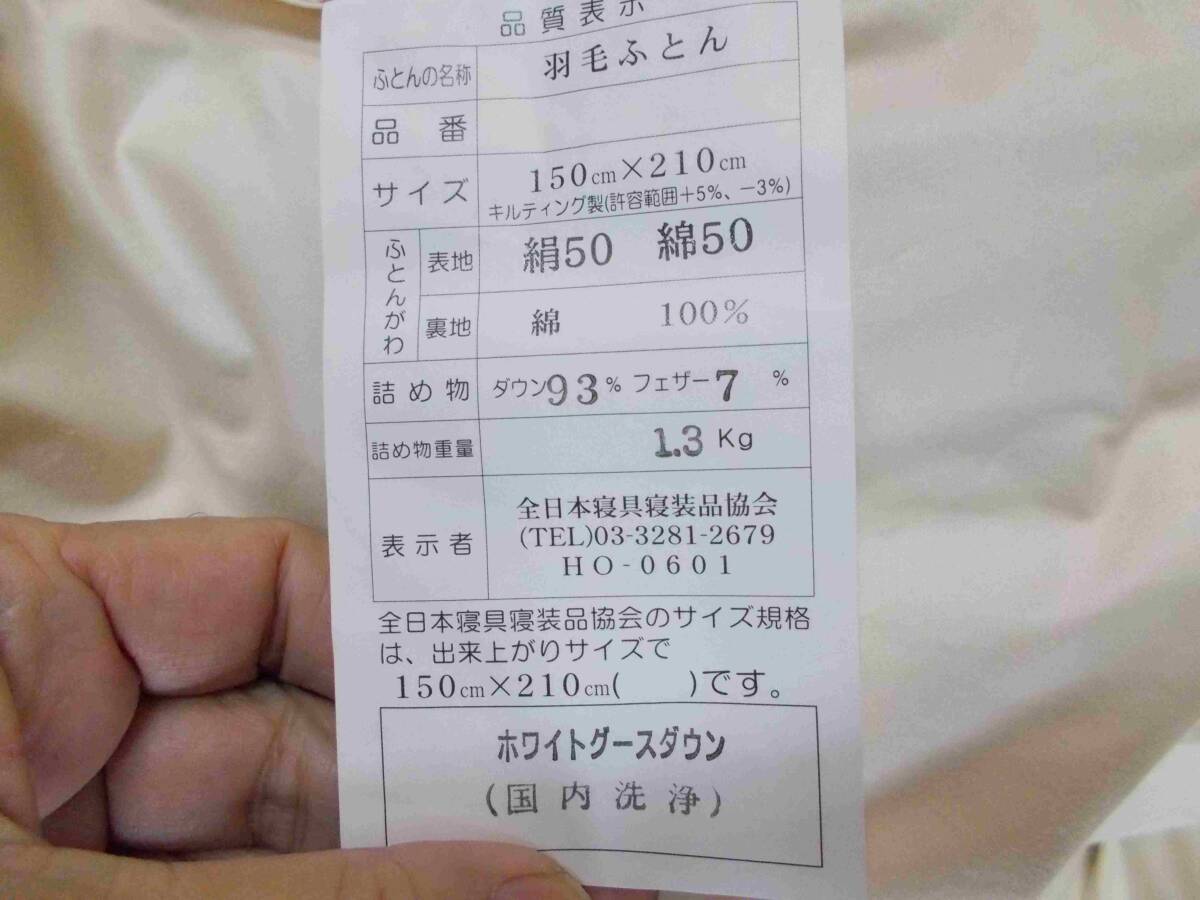 品質表示
ふとんの名称 羽毛ふとん
品番
サイズ 150cm×210cm
キルティング製(許容範囲+5%、-3%)
ふとんがわ 表地 絹50 綿50
裏地 綿 100%
詰め物 ダウン93% フェザー7 %
詰め物重量 1.3 Kg
表示者 全日本寝具寝装品協会
(TEL)03-3281-2679
HO-0601
全日本寝具寝装品協会のサイズ規格
は、出来上がりサイズで
150cm×210cm( )です。
ホワイトグースダウン
(国内洗浄)